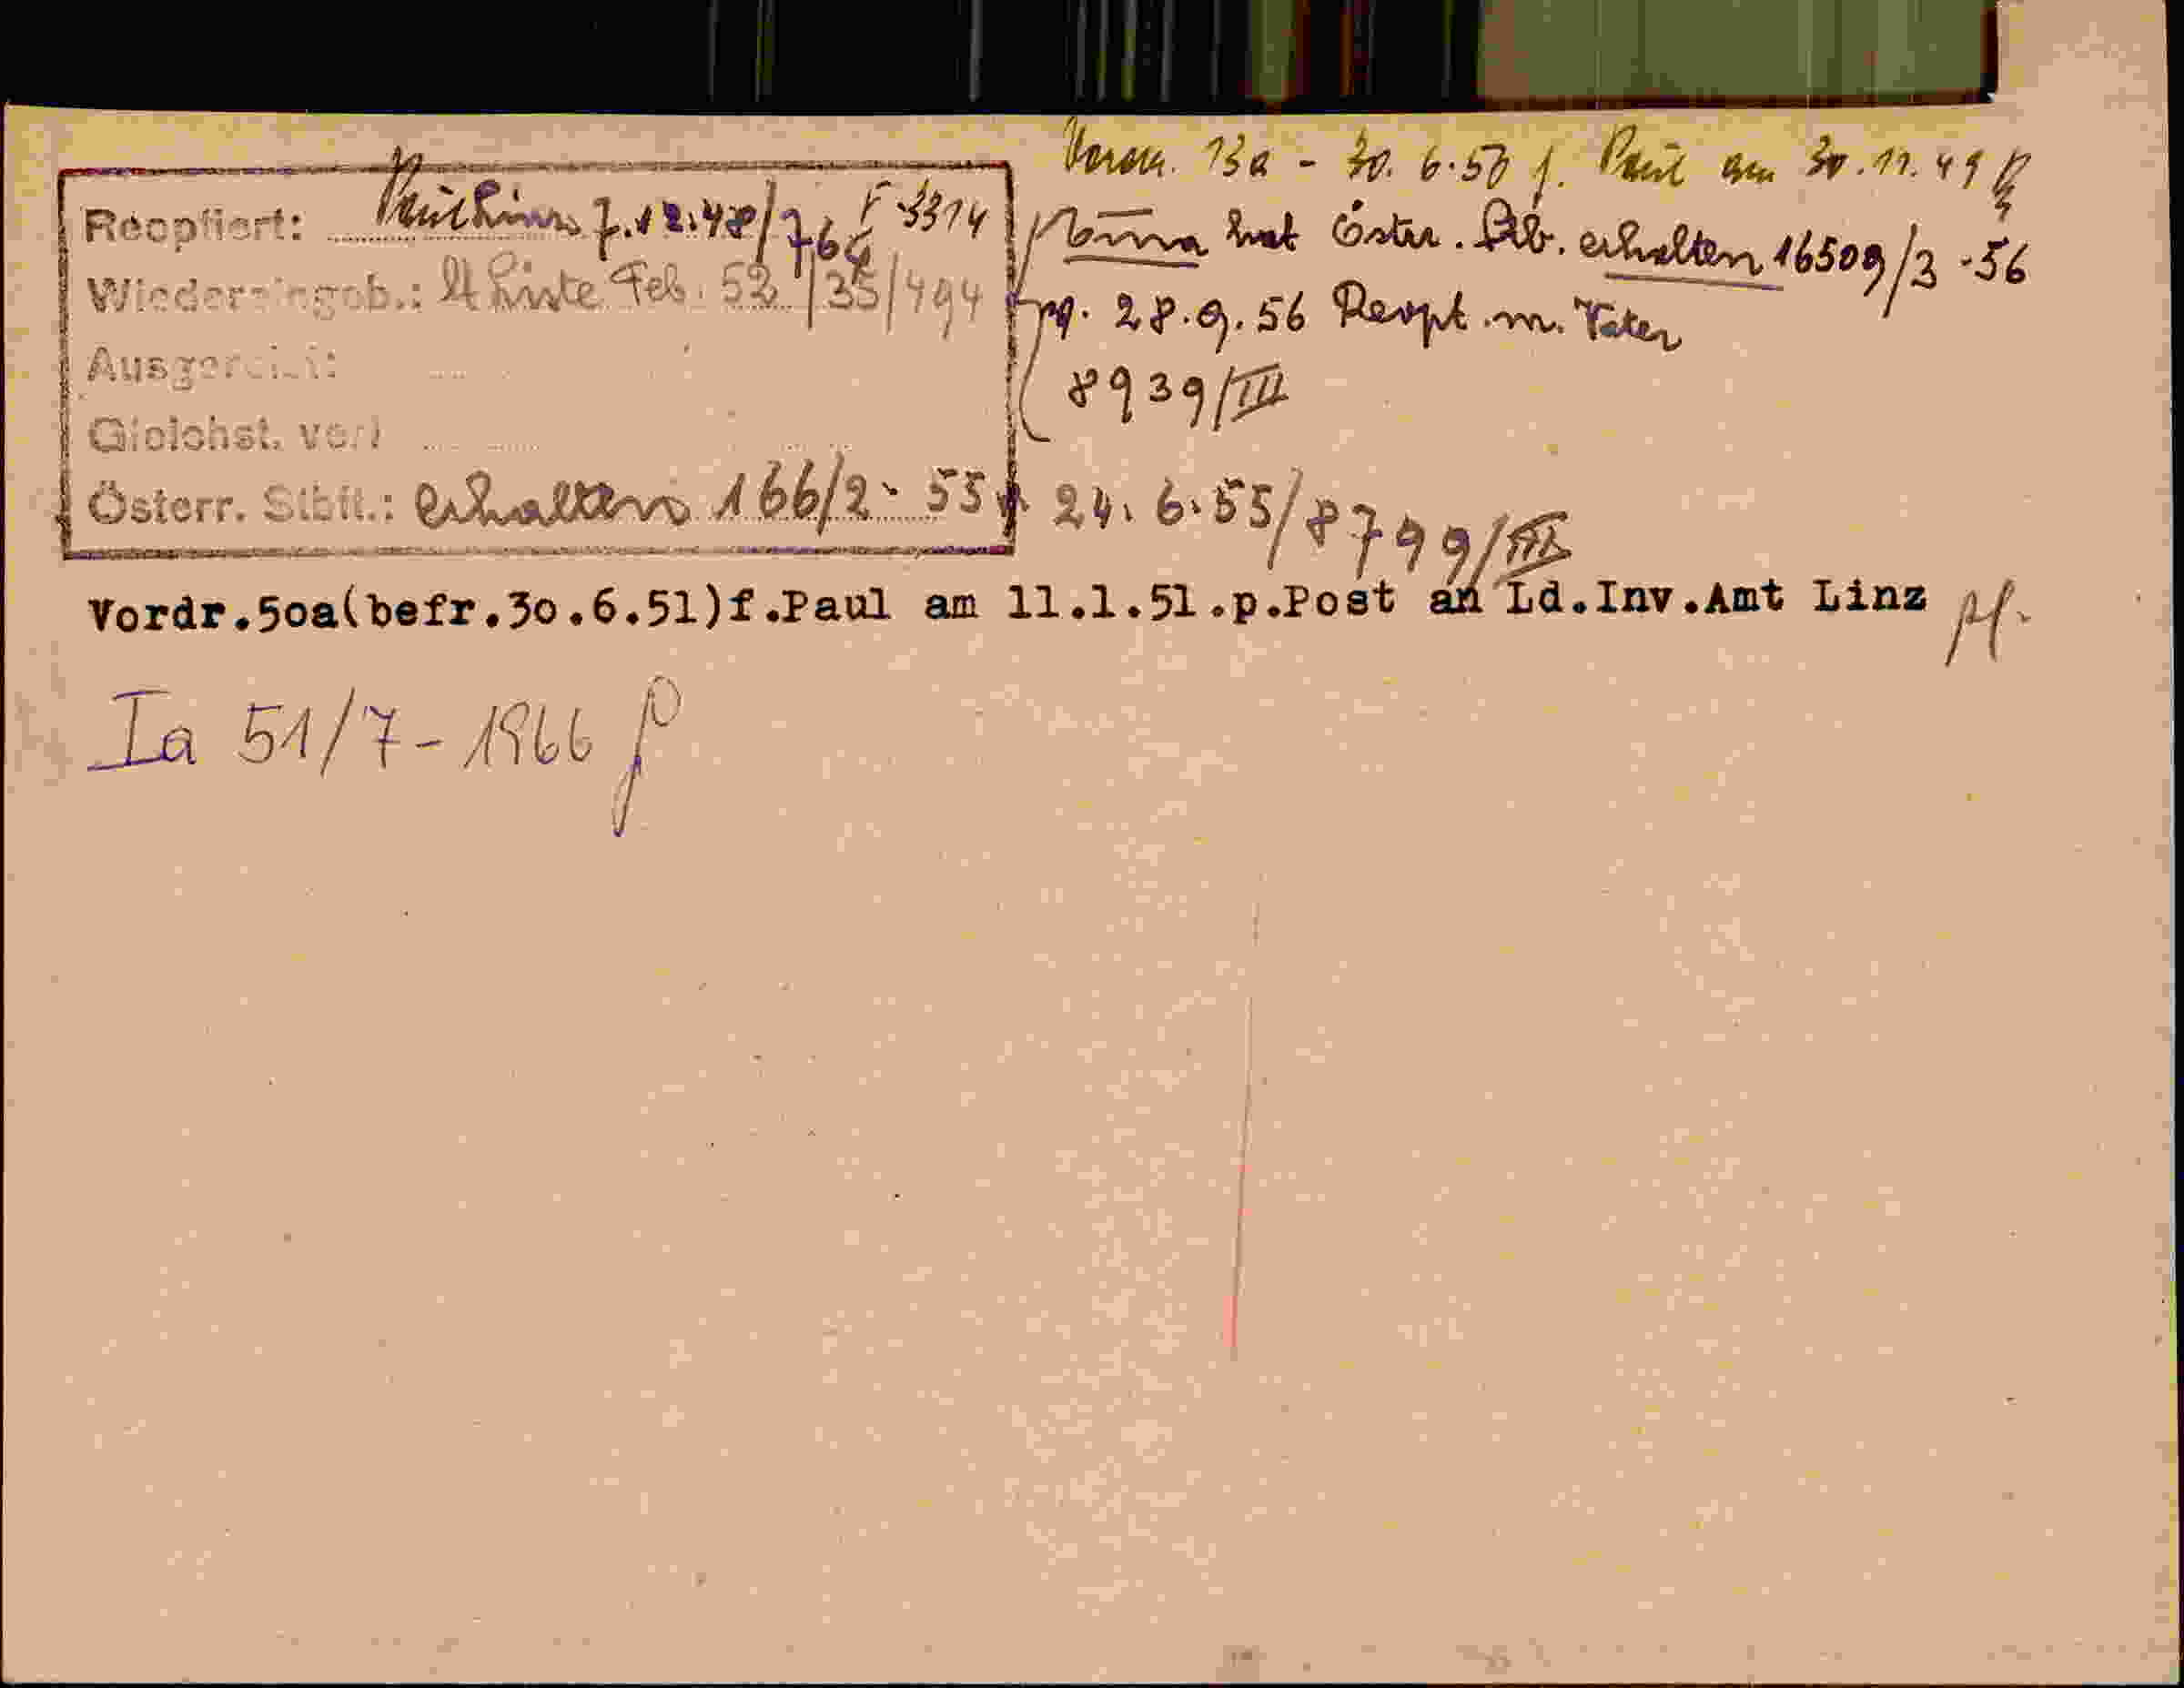 Vordr. 13a - 30.6.50 f. Paul am 30.11.49
Reoptiert: 7.12.48/764 F 3314
Nima hat Öster. Stb. erhalten 16509/3-56
Wiedereingeb.: lt Liste Feb. 52/35/494
28.9.56 Reopt. m. Vater
Ausgereist:
8939/III
Gleichst. verl
Österr. Stbft.: erhalten 166/2-55 24.6.55/8799/III
Vordr.50a(befr.30.6.51)f.Paul am 11.1.51.p.Post an Ld.Inv.Amt Linz
Ia 51/7-1966